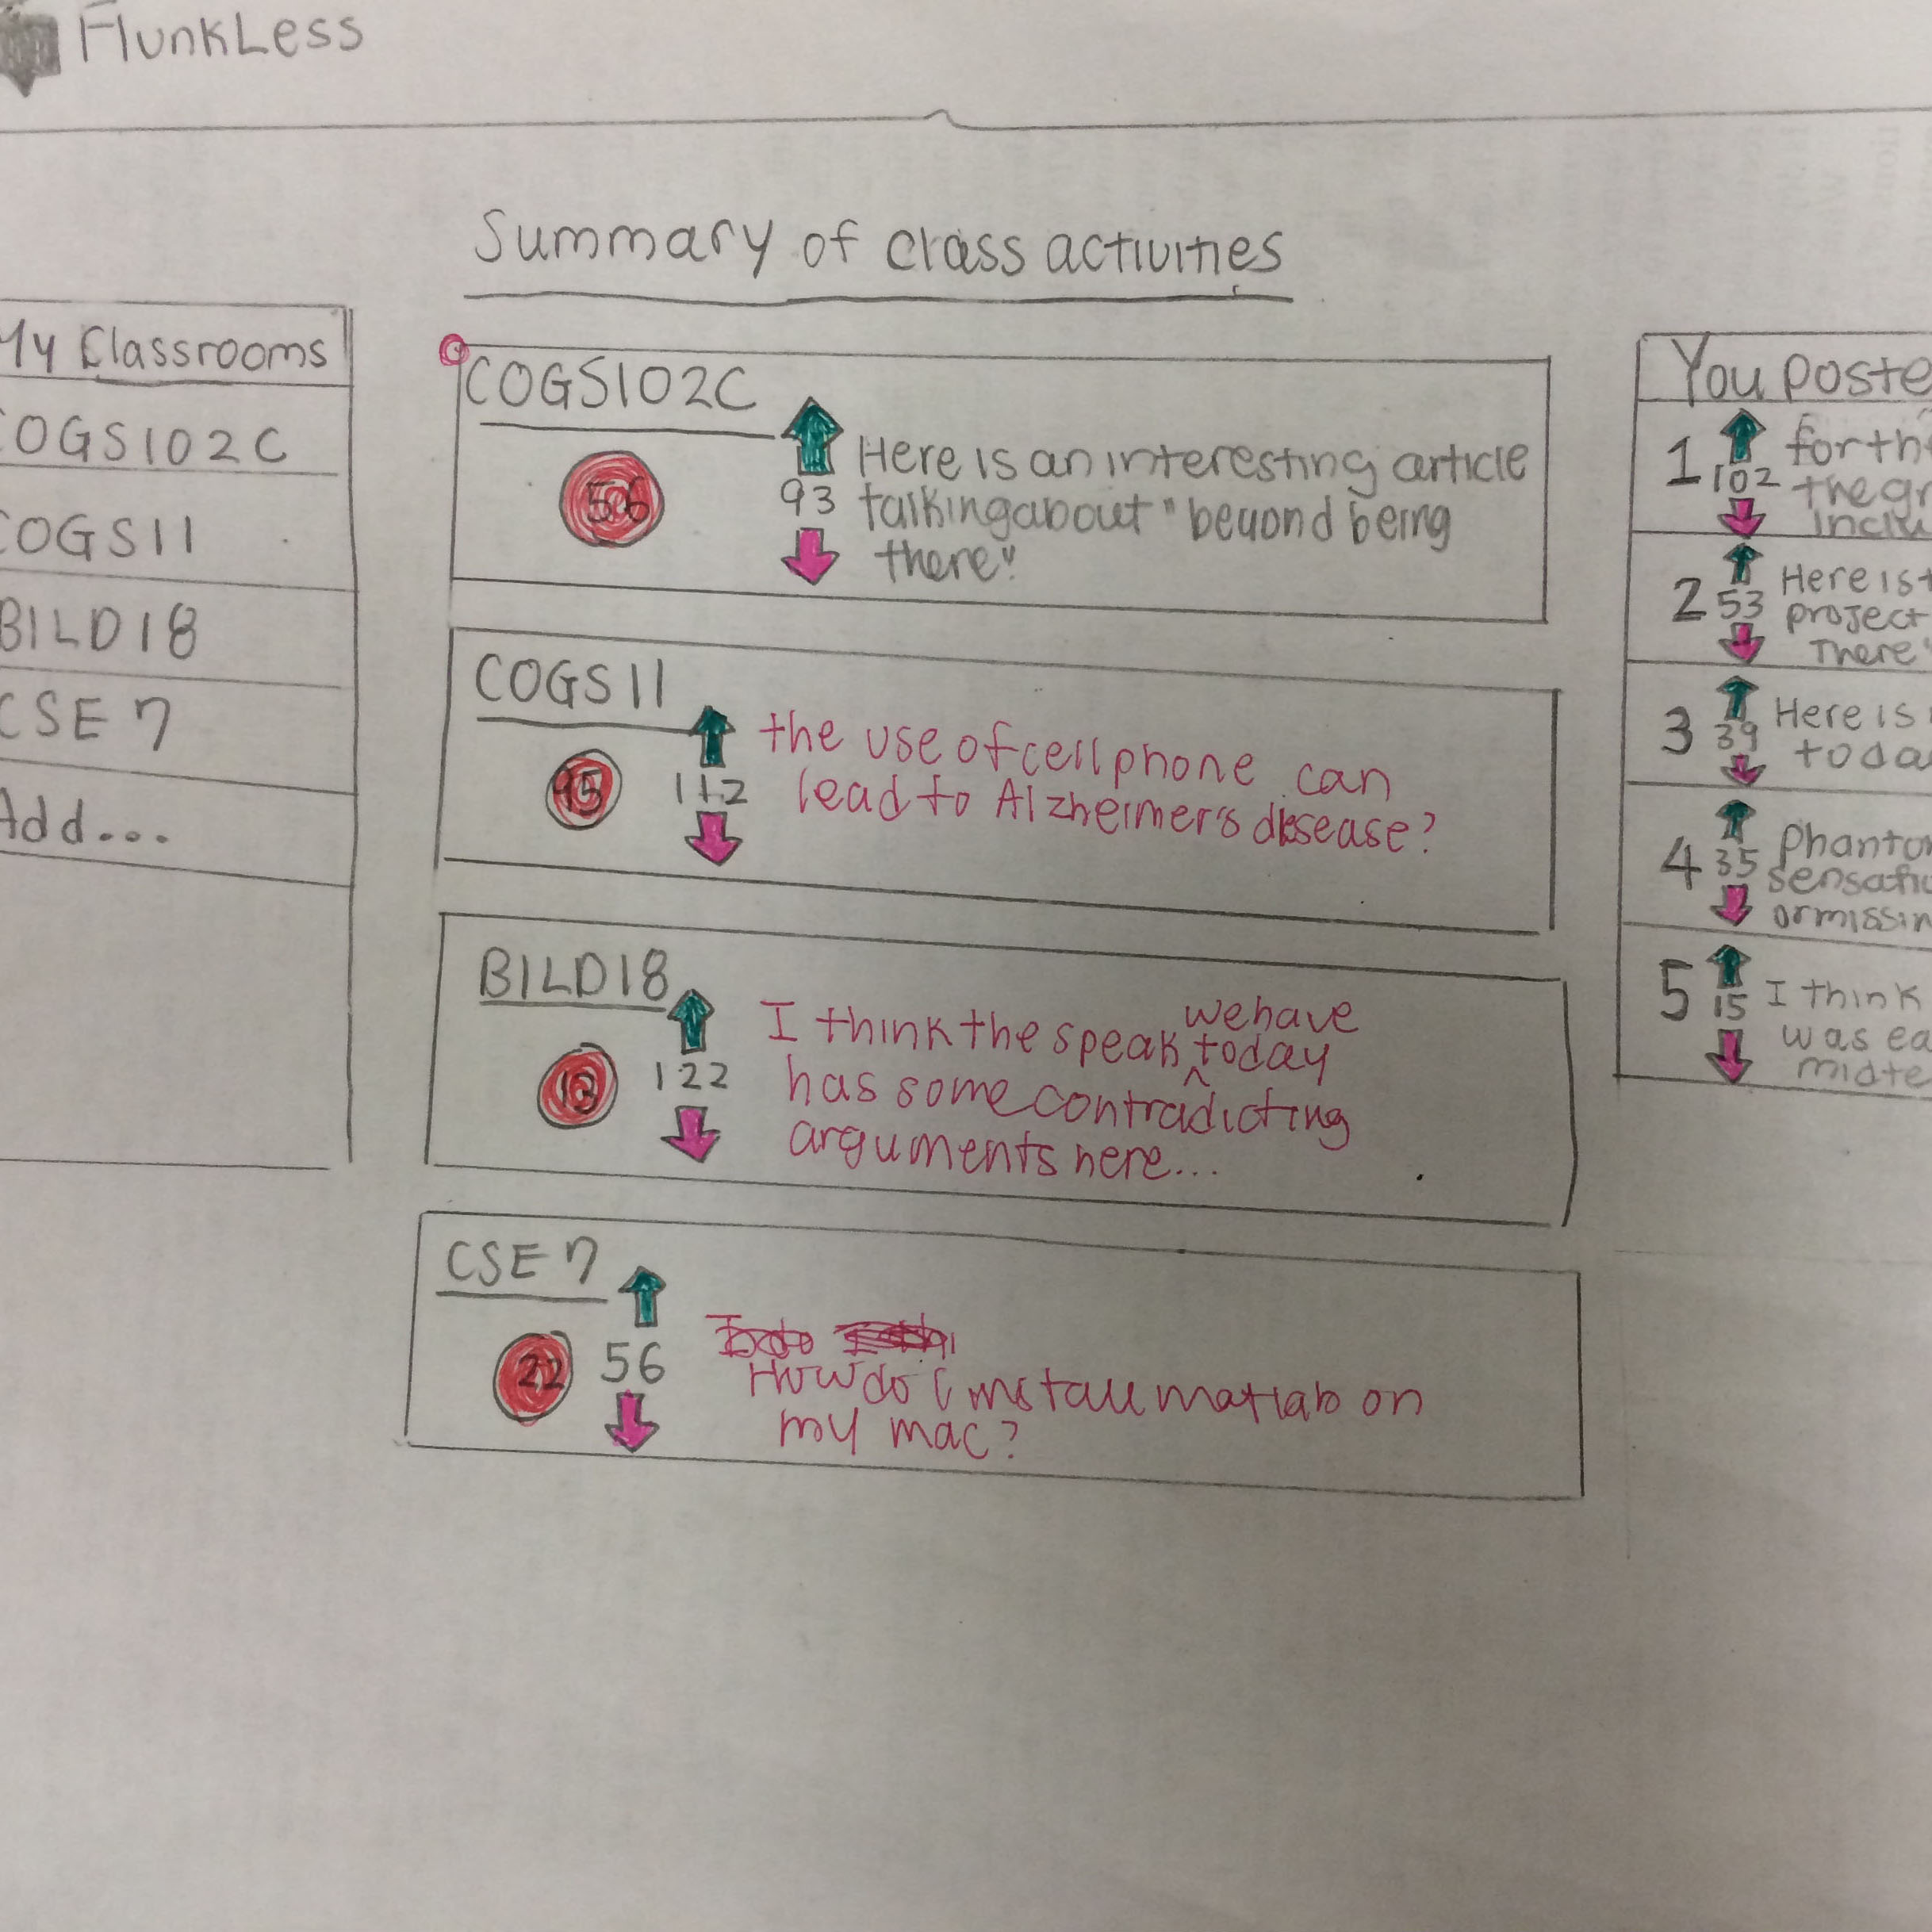 FlunkLess
Summary of class activities
My Classrooms
COGS102C
COGS11
BILD18
CSE 7
Add...
COGS102C
56
93
Here is an interesting article
talking about "beyond being
there".
COGS 11
45
112
the use of cellphone can
lead to Alzheimer's disease?
BILD18
13
122
we have
I think the speak ^ today
has some contradicting
arguments here...
CSE 7
22
56
How do I install matlab on
my mac?
You poste
1
102
for th
the gr
inclu
2
53
Here is t
project
There"
3
39
Here is
toda
4
35
Phanto
sensatio
or missin
5
15
I think
was ea
midte